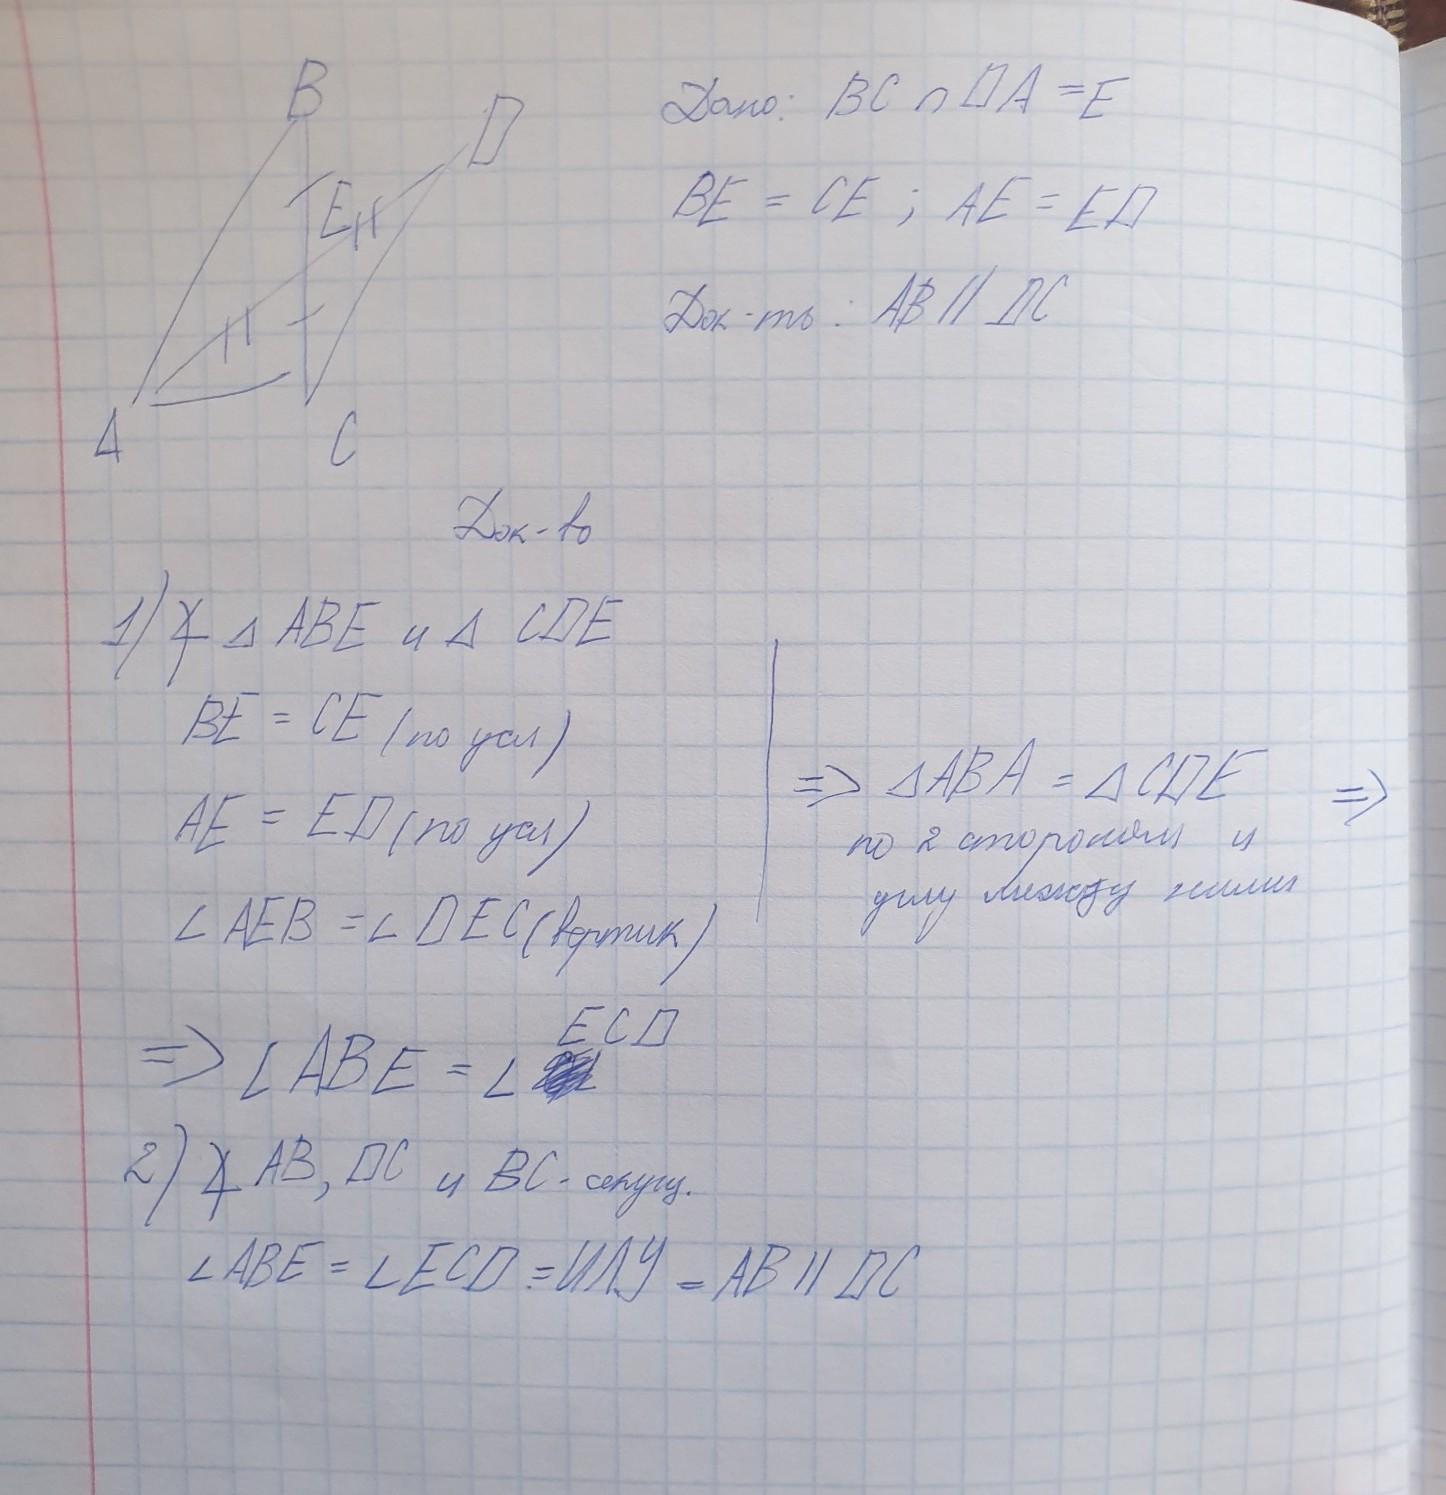 B
D
E
A
C
Дано: BC ∩ DA = E
BE = CE ; AE = ED
Док-ть: AB || DC
Док-во
1) ∠ Δ ABE и Δ CDE
BE = CE (по усл)
AE = ED (по усл)
∠ AEB = ∠ DEC (вертик)
=> Δ ABA = Δ CDE =>
по 2 сторонам и
углу между ними
=> ∠ ABE = ∠ ECD
2) ∠ AB, DC и BC - секущ.
∠ ABE = ∠ ECD = НЛУ - AB || DC